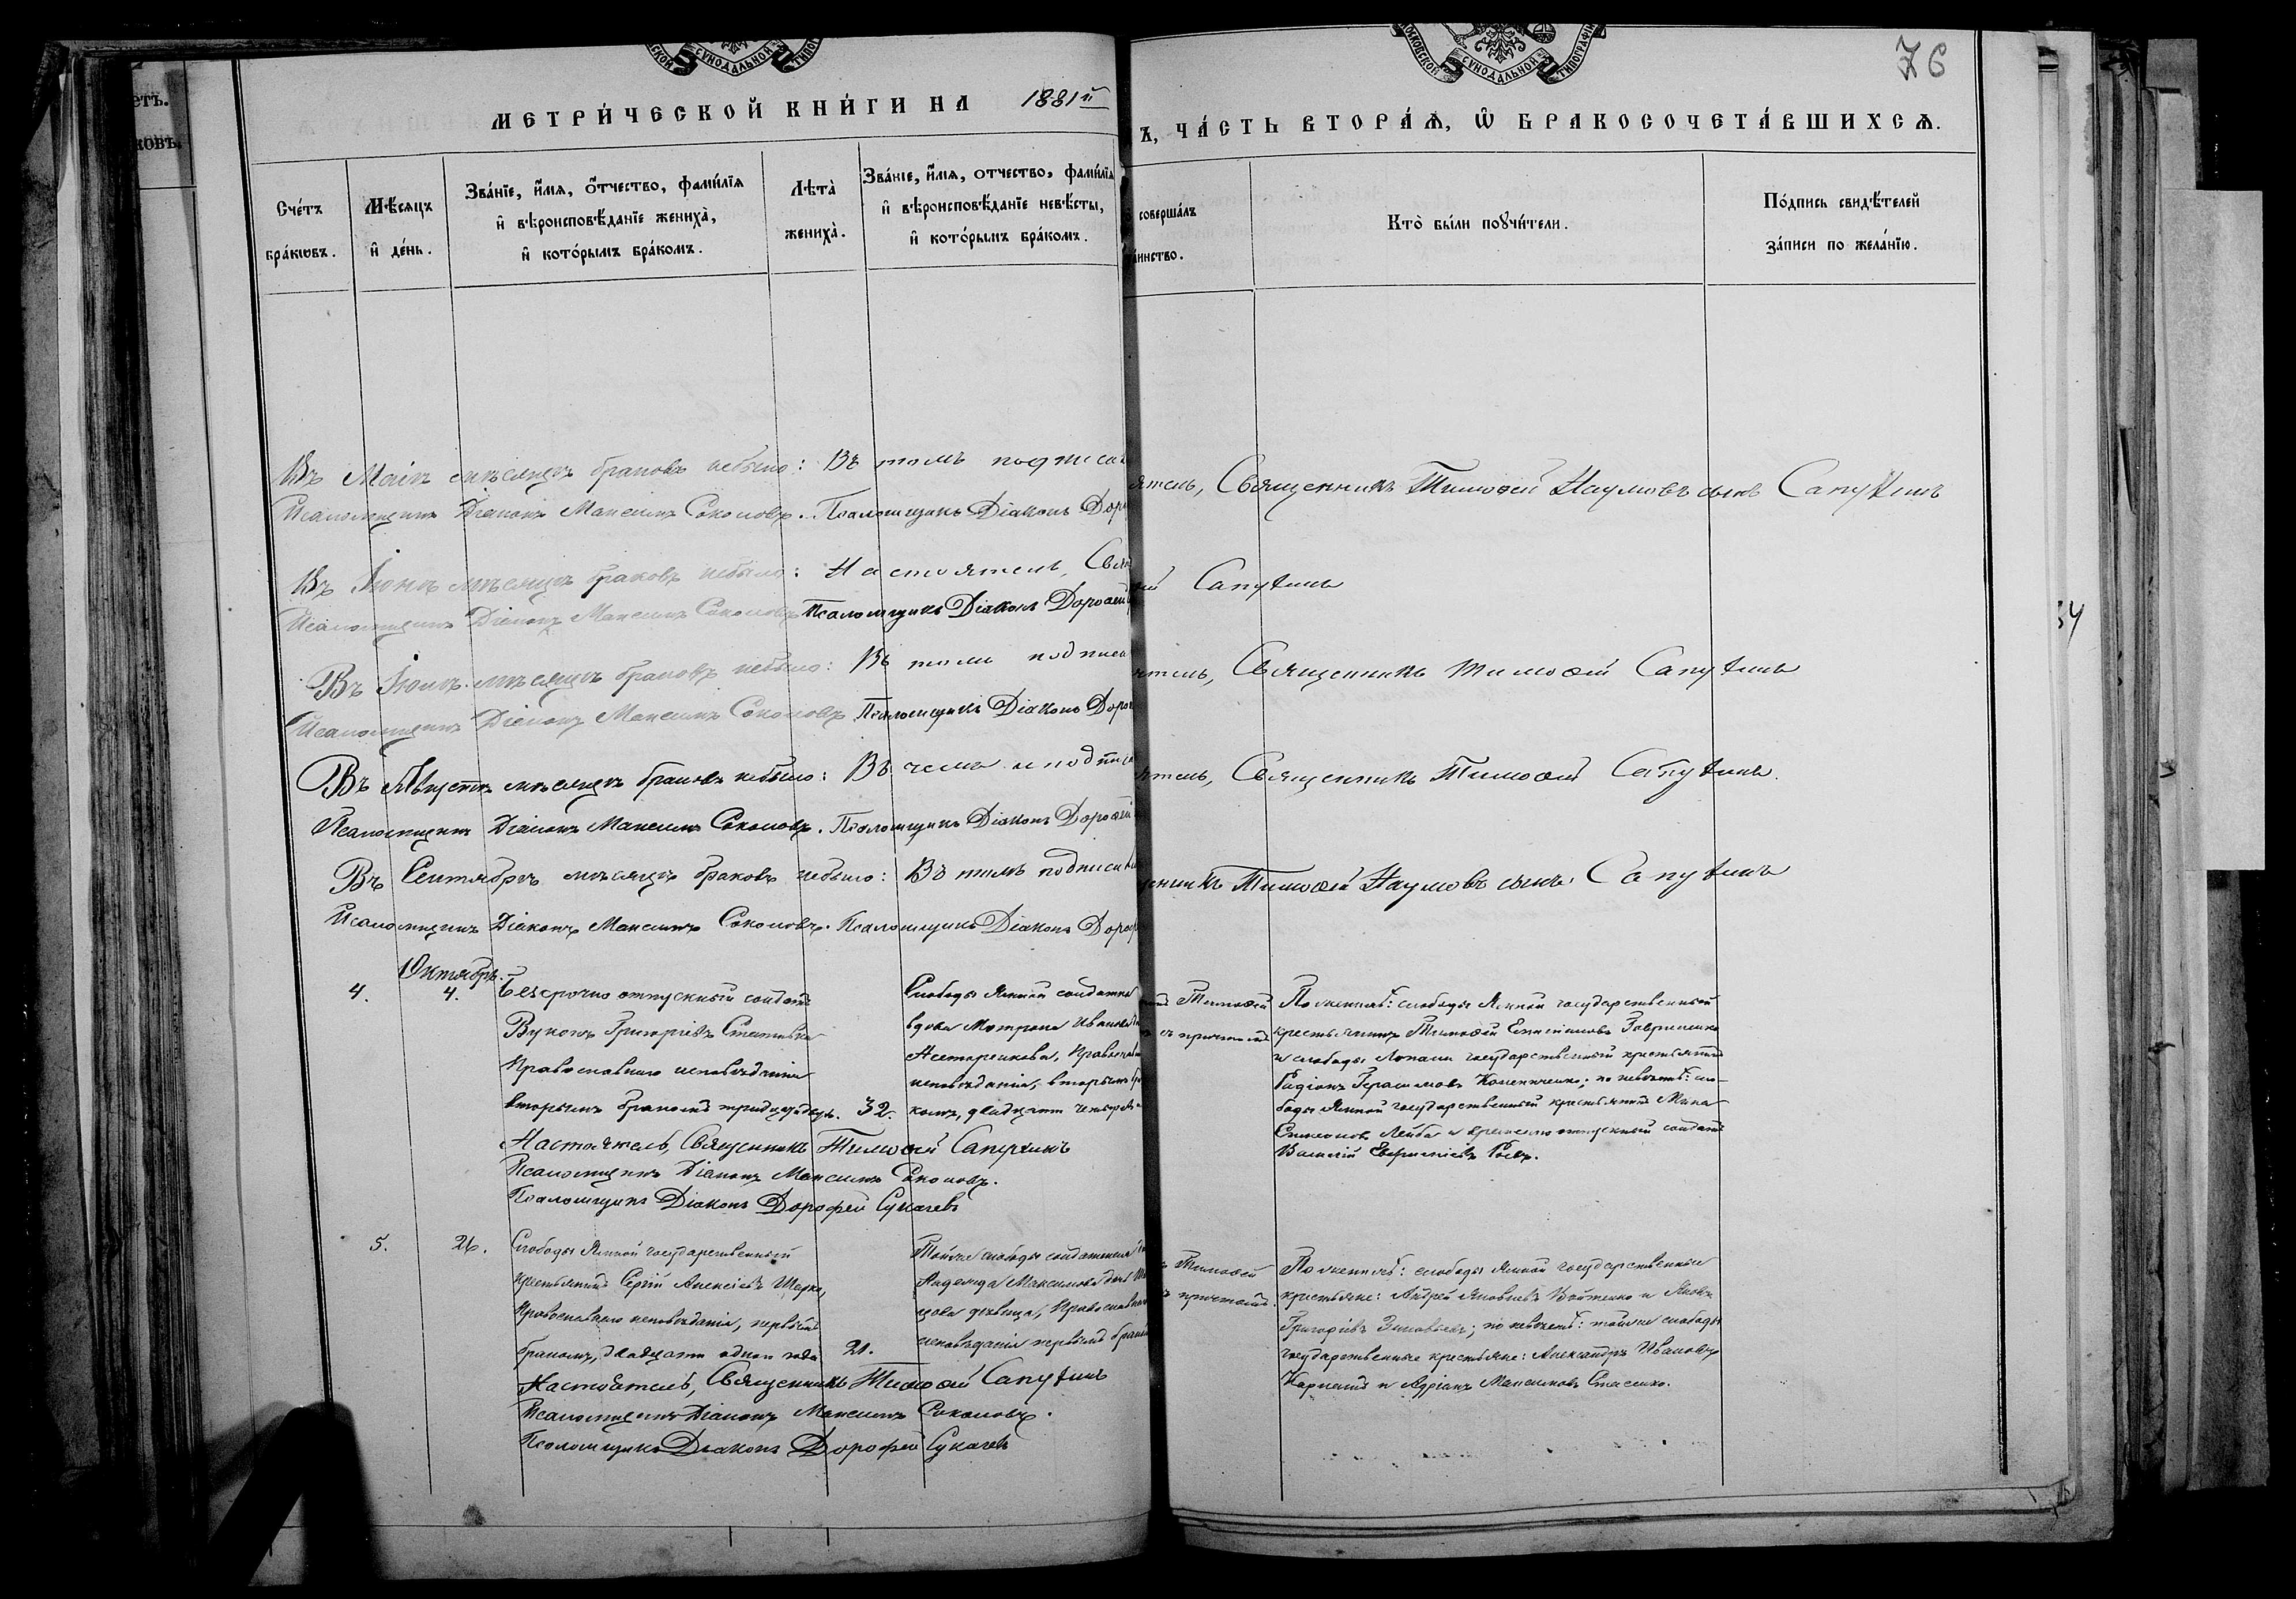 76
МЕТРИ́ЧЕСКОЙ КНИ́ГИ НА 1881й
Ъ, ЧА́СТЬ ВТОРА́Ѧ, Ѿ БРАКОСОЧЕТА́ВШИХСѦ.
Сче́тъ бра́кѡвъ.
Мѣ́сяцъ и҆ де́нь.
Зва́нїе, и҆́мѧ, ѻ҆́тчество, фами́лїѧ
и҆ вѣроисповѣ́данїе жениха̀,
и҆ кото́рымъ бра́комъ.
Лѣта̀ жениха̀.
Зва́нїе, и҆́мѧ, отчество, фами́лїѧ
и҆ вѣроисповѣ́данїе невѣ́сты,
и҆ кото́рымъ бра́комъ.
соверша́лъ
Кто̀ бы́ли поꙋчи́тели.
По́дпись свидѣ́телей
за́писи по жела́нїю.
Въ Маіѣ мѣсяцѣ браковъ небыло: Въ томъ подписа
ятель, Священникъ Тимоѳей Наумовъ сынъ Сапухинъ
Псаломщикъ Діаконъ Максимъ Соколовъ. Псаломщикъ Діаконъ Дор
Въ Іюнѣ мѣсяцѣ браковъ небыло: Настоятель, Свя
Сапухинъ
Псаломщикъ Діаконъ Максимъ Соколовъ Псаломщикъ Діаконъ Дорофей
Въ Іюлѣ мѣсяцѣ браковъ небыло: Въ томъ подписа
ятель, Священникъ Тимоѳей Сапухинъ
Псаломщикъ Діаконъ Максимъ Соколовъ Псаломщикъ Діаконъ Доро
Въ Августѣ мѣсяцѣ браковъ небыло: Въ чемъ и подписа
ятель, Священникъ Тимоѳей Сапухинъ.
Псаломщикъ Діаконъ Максимъ Соколовъ. Псаломщикъ Діаконъ Дорофей
Въ Сентябрѣ мѣсяцѣ браковъ небыло: Въ томъ подписа
щенникъ Тимоѳей Наумовъ сынъ Сапухинъ
Псаломщикъ Діаконъ Максимъ Соколовъ. Псаломщикъ Діаконъ Дороф
Октябрь.
4. 4.
Безсрочно отпускный солдатъ
Григоріевъ
Православнаго исповѣданія
вторымъ бракомъ тридцать два. 32.
Слободы Ямной солдатка
вдова Матрона Иванова
Православн
исповѣданія, вторымъ бра
комъ, двадцати четырехъ
Тимоѳей
съ причтомъ
По женихѣ: слободы Ямной государственный
крестьянинъ Тимоѳей
и слободы Лопани государственный крестьянинъ
Герасимовъ; по невѣстѣ: сло-
боды Ямной государственный крестьянинъ
и временно отпускный солдатъ
Василій
Настоятель, Священникъ Тимоѳей Сапухинъ
Псаломщикъ Діаконъ Максимъ Соколовъ.
Псаломщикъ Діаконъ Дорофей Сукачевъ
5. 26.
Слободы Ямной государственный
крестьянинъ Сергій Алексіевъ
Православнаго исповѣданія, первымъ
бракомъ, двадцати одного года 21.
Тойже слободы
Надежда Максимова дочь
дѣвица, Православнаго
исповѣданія первымъ брако
Тимоѳей
причтомъ.
По женихѣ: слободы Ямной государственные
крестьяне: Андрей Яковлевъ Войтенко и Яковъ
Григоріевъ; по невѣстѣ: тойже слободы
государственные крестьяне: Александръ Ивановъ
и Адріанъ Максимовъ Стасенко.
Настоятель, Священникъ Тимоѳей Сапухинъ
Псаломщикъ Діаконъ Максимъ Соколовъ.
Псаломщикъ Діаконъ Дорофей Сукачевъ